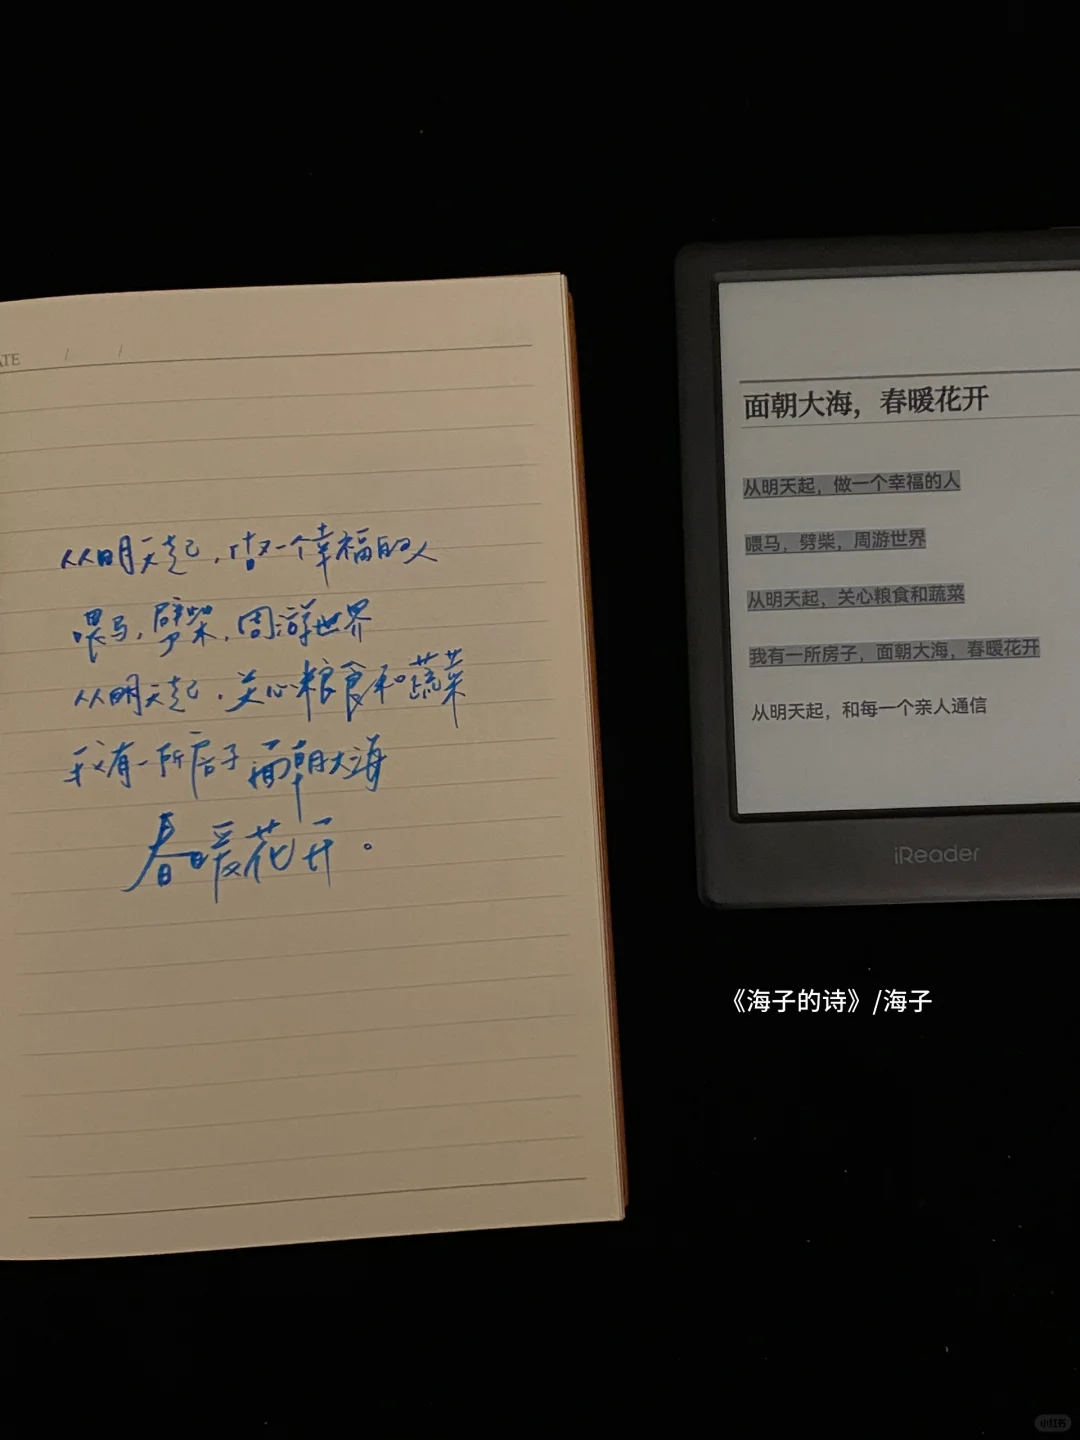 DATE / /
从明天起，做一个幸福的人
喂马，劈柴，周游世界
从明天起，关心粮食和蔬菜
我有一所房子 面朝大海
春暖花开。
面朝大海，春暖花开
从明天起，做一个幸福的人
喂马，劈柴，周游世界
从明天起，关心粮食和蔬菜
我有一所房子，面朝大海，春暖花开
从明天起，和每一个亲人通信
iReader
《海子的诗》/海子
小红书